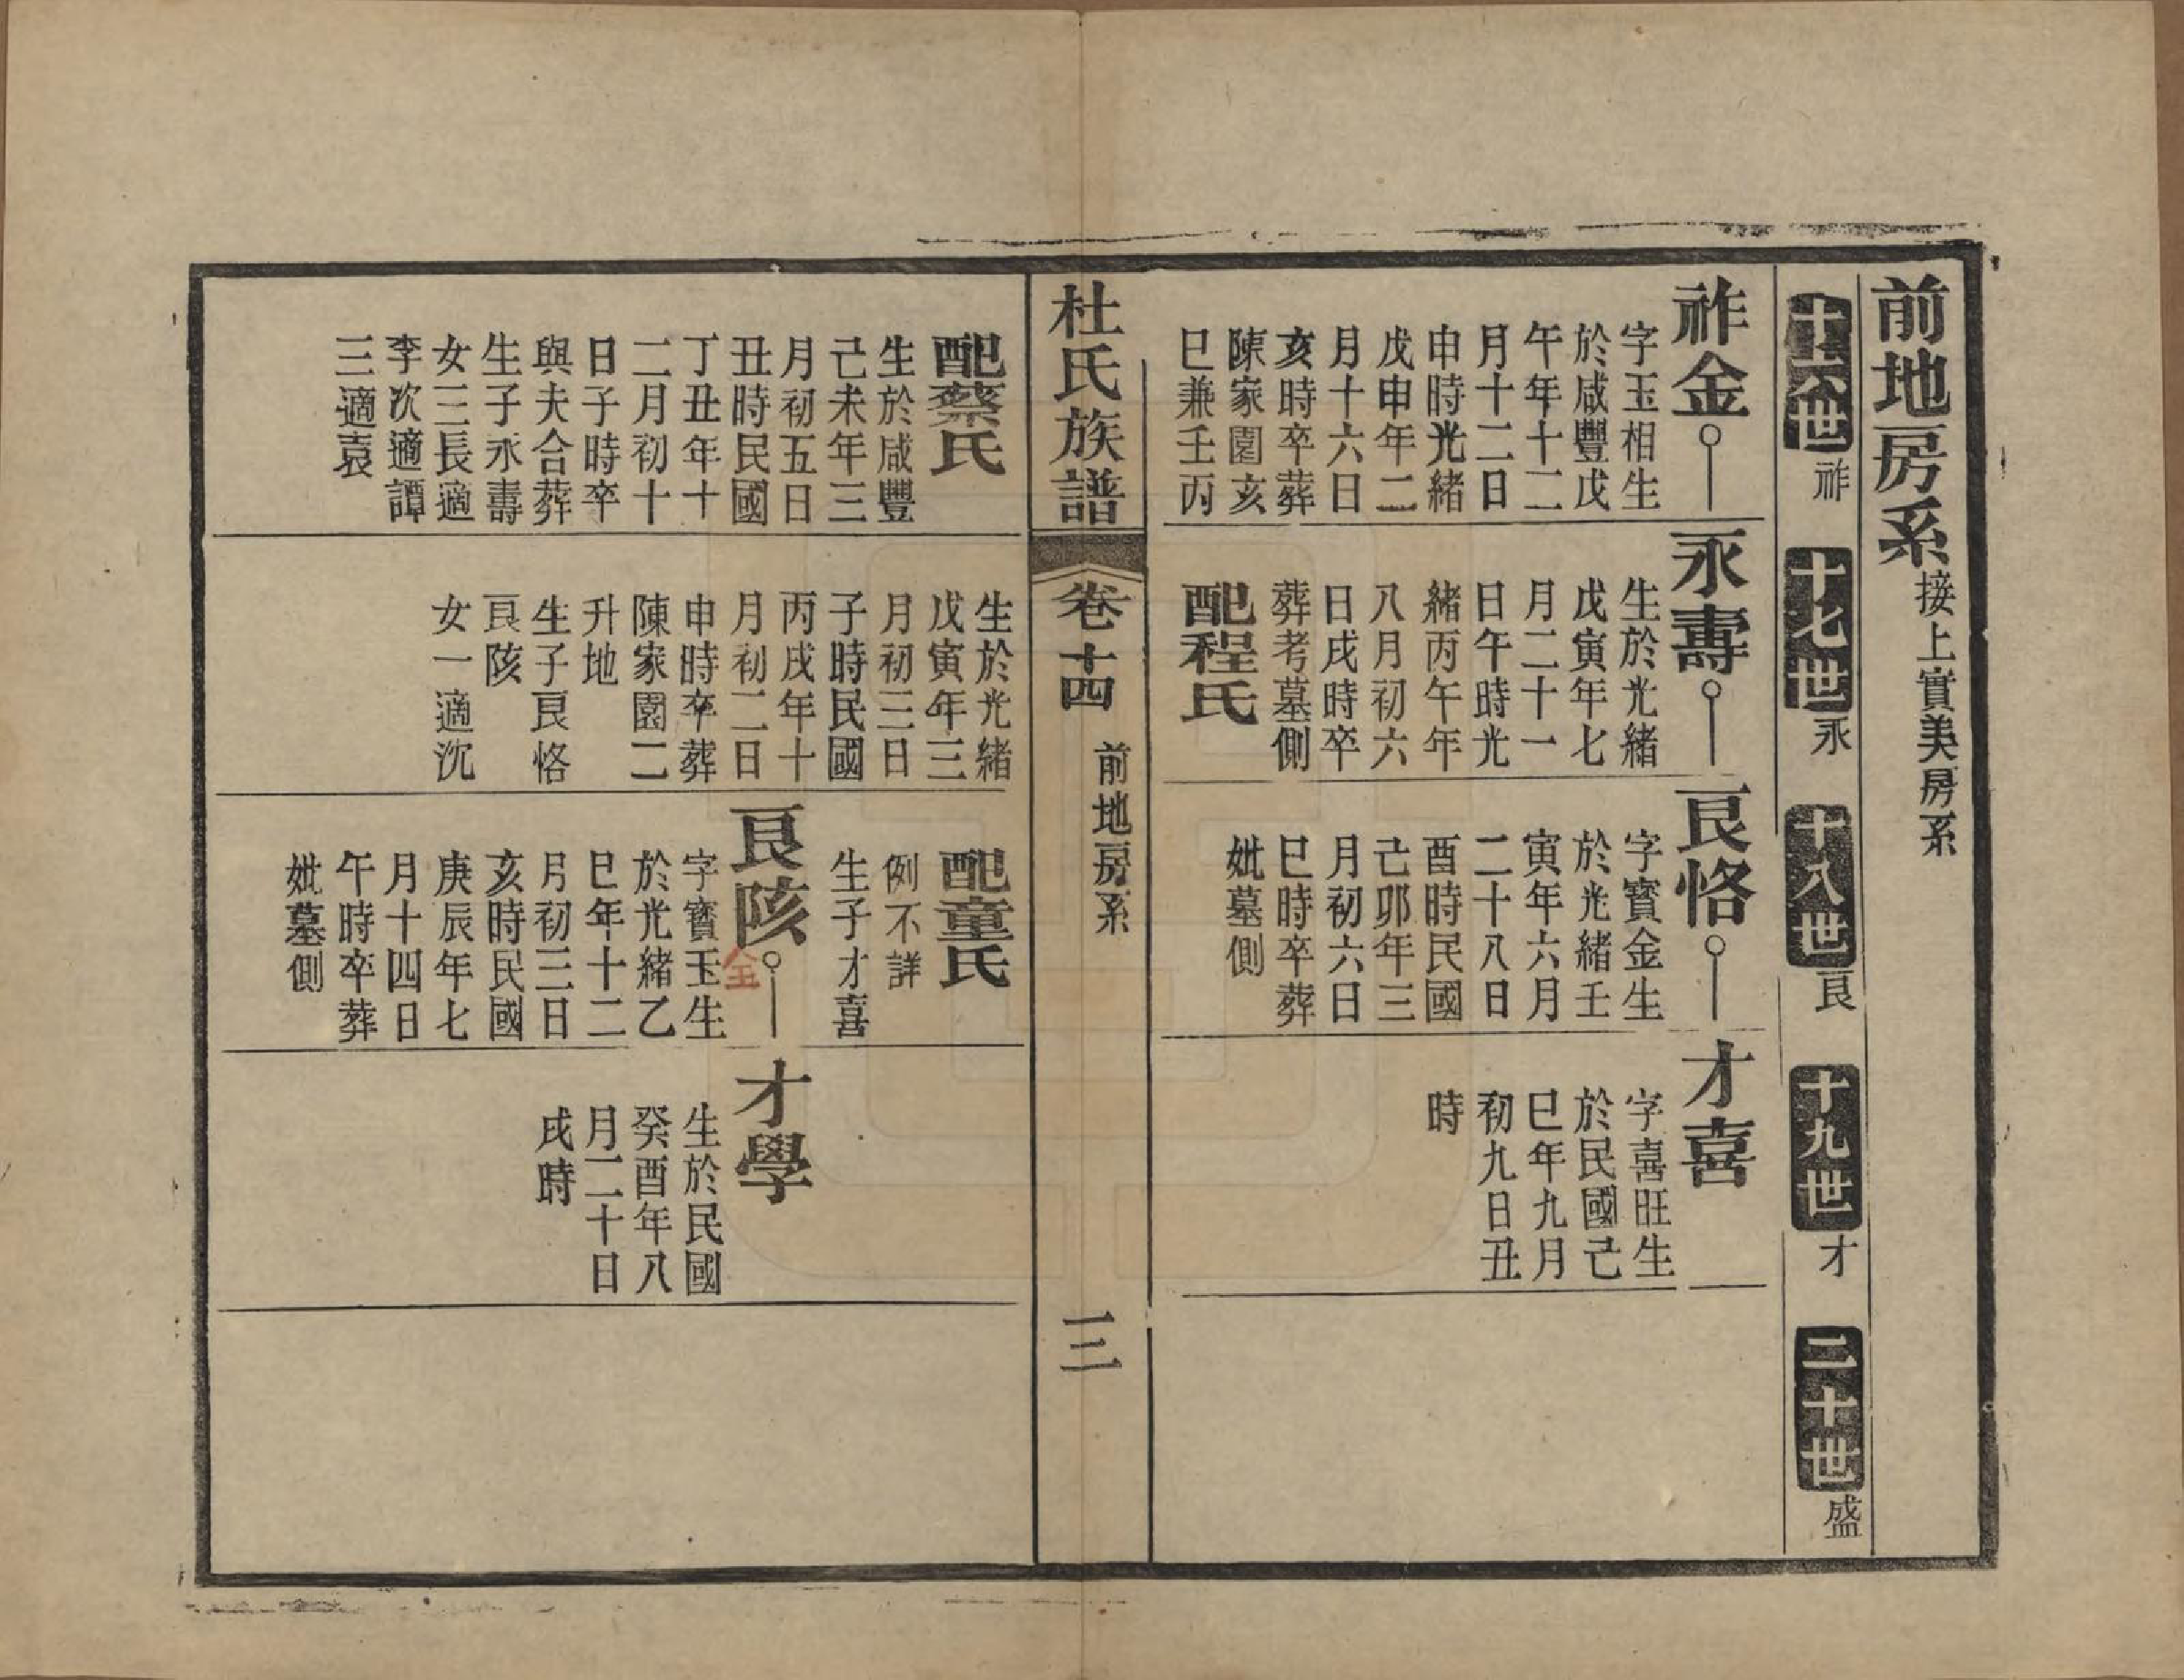 前地房系接上實美房系
十六世祚
十七世永
十八世良
十九世才
二十世盛
祚金
字玉相生
於咸豐戊
午年十二
月十二日
申時光緒
戊申年二
月十六日
亥時卒葬
陳家園亥
巳兼壬丙
永壽
生於光緒
戊寅年七
月二十一
日午時光
緒丙午年
八月初六
日戌時卒
葬考墓側
配程氏
良恪
字寶金生
於光緒壬
寅年六月
二十八日
酉時民國
己卯年三
月初六日
巳時卒葬
妣墓側
才喜
字喜旺生
於民國己
巳年九月
初九日丑
時
杜氏族譜
卷十四
前地房系
三
配蔡氏
生於咸豐
己未年三
月初五日
丑時民國
丁丑年十
二月初十
日子時卒
與夫合葬
生子永壽
女三長適
李次適譚
三適袁
生於光緒
戊寅年三
月初三日
子時民國
丙戌年十
月初二日
申時卒葬
陳家園二
升地
生子良恪
良陔
女一適沈
配童氏
例不詳
生子才喜
良陔
全
字寶玉生
於光緒乙
巳年十二
月初三日
亥時民國
庚辰年七
月十四日
午時卒葬
妣墓側
才學
生於民國
癸酉年八
月二十日
戌時